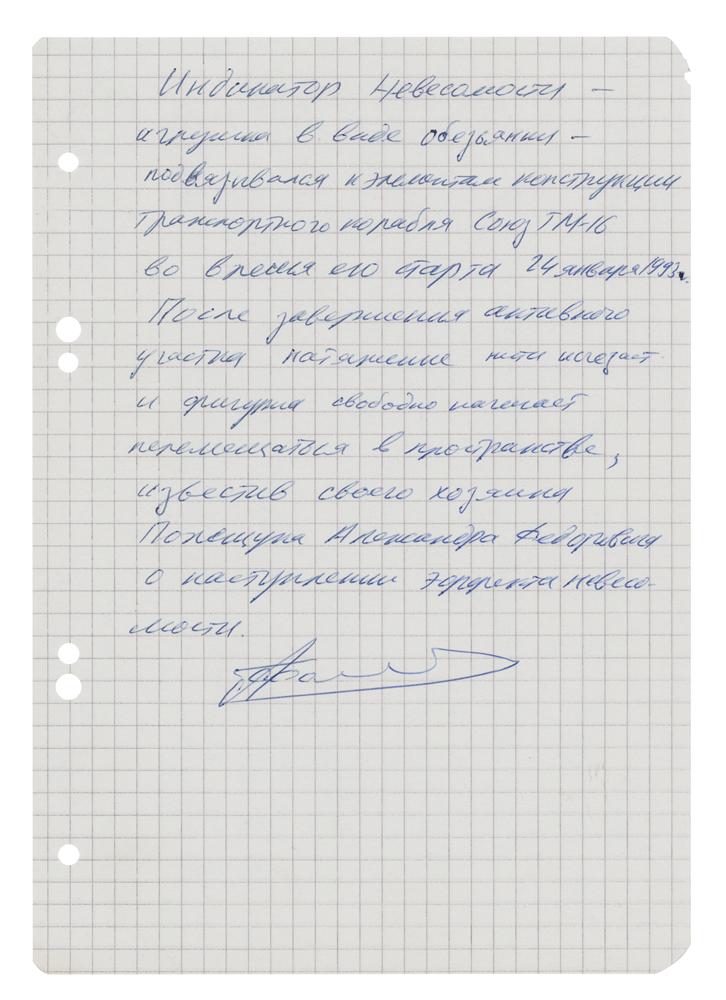 Индикатор Невесомости –
игрушка в виде обезьянки –
подвязывался к элементам конструкции
транспортного корабля Союз ТМ-16
во время его старта 24 января 1993г.
После завершения активного
участка натяжение нити исчезает
и фигурка свободно начинает
перемещаться в пространстве,
известив своего хозяина
Полещука Александра Федоровича
о наступлении эффекта невесо-
мости.